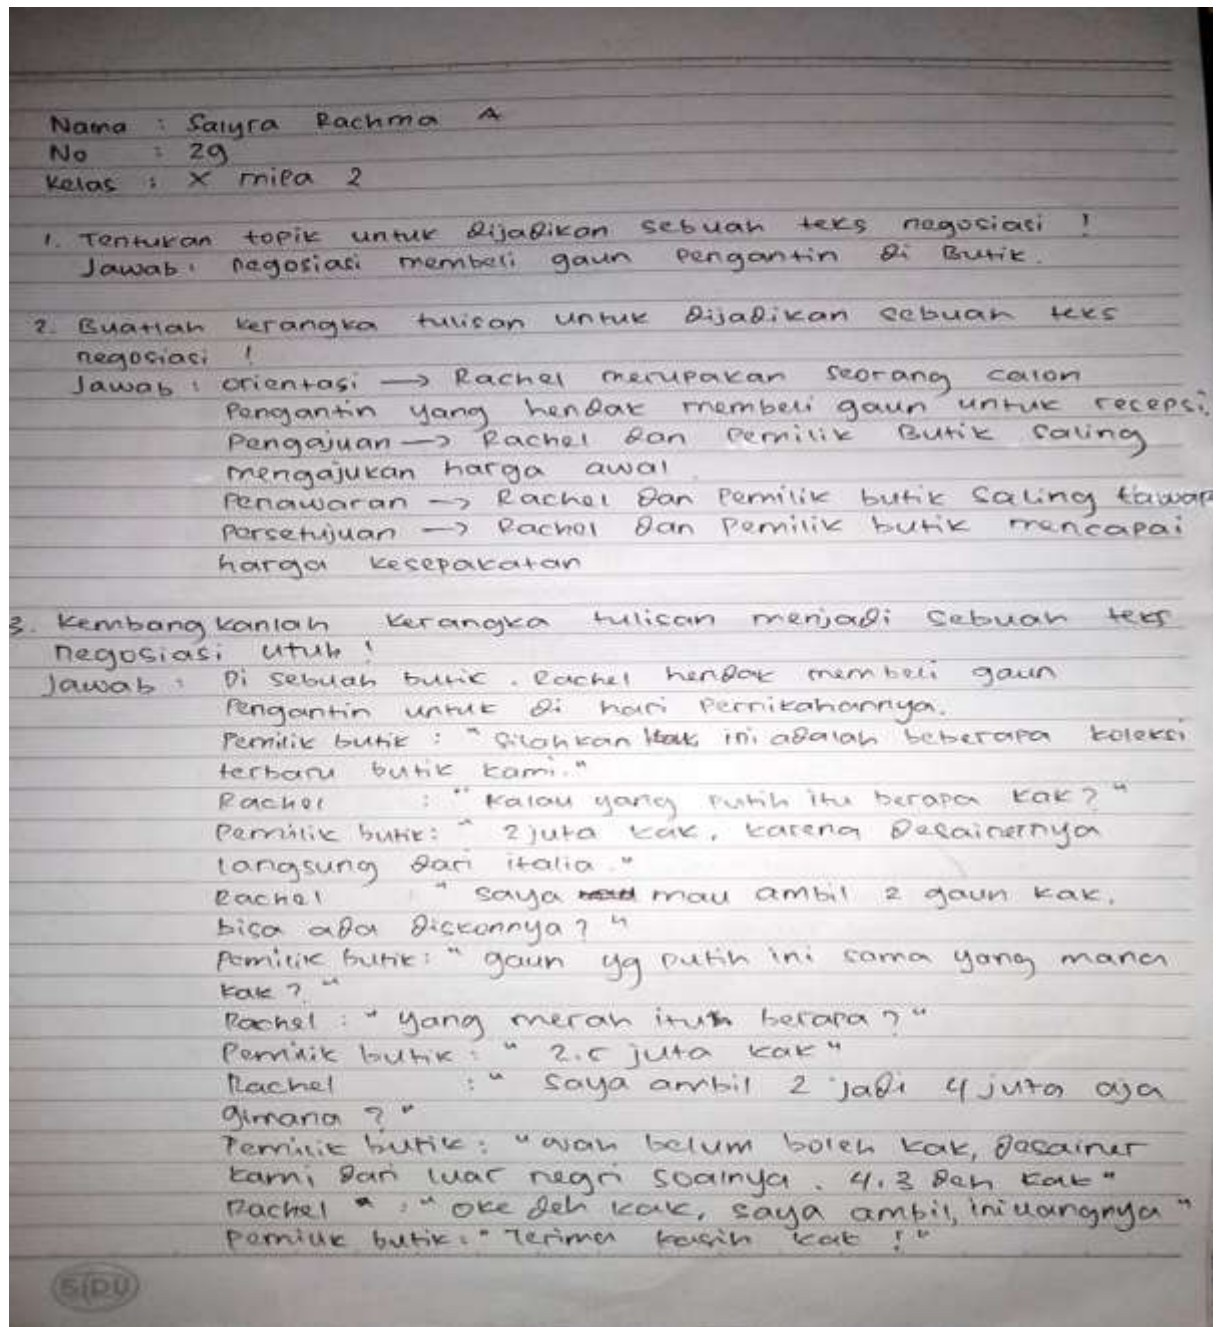 Nama : Salyra Rachma A
No : 29
Kelas : X mipa 2
1. Tentukan topik untuk dijadikan sebuah teks negosiasi !
Jawab : negosiasi membeli gaun pengantin di Butik.
2. Buatlah kerangka tulisan untuk dijadikan sebuah teks
negosiasi !
Jawab : orientasi → Rachel merupakan seorang calon
Pengantin yang hendak membeli gaun untuk recepsi.
Pengajuan → Rachel dan Pemilik Butik saling
mengajukan harga awal
Penawaran → Rachel dan Pemilik butik saling tawar
Persetujuan → Rachel dan Pemilik butik mencapai
harga kesepakatan
3. Kembangkanlah kerangka tulisan menjadi sebuah teks
negosiasi utuh !
Jawab : Di sebuah butik . Rachel hendak membeli gaun
Pengantin untuk di hari Pernikahannya.
Pemilik butik : "Silahkan kak ini adalah beberapa koleksi
terbaru butik kami."
Rachel : "Kalau yang putih itu berapa kak?"
Pemilik butik: "2 juta kak, karena Desainernya
langsung dari italia."
Rachel : "saya mau ambil 2 gaun kak,
bisa ada diskonnya ?"
Pemilik butik: "gaun yg putih ini sama yang mana
kak ?"
Rachel : "yang merah itu berapa ?"
Pemilik butik : "2.5 juta kak"
Rachel : "saya ambil 2 jadi 4 juta aja
gimana ?"
Pemilik butik : "wah belum boleh kak, desainer
kami dari luar negri soalnya . 4.3 deh kak"
Rachel : "oke deh kak, saya ambil, ini uangnya"
Pemilik butik : "Terima kasih kak !"
SIDU